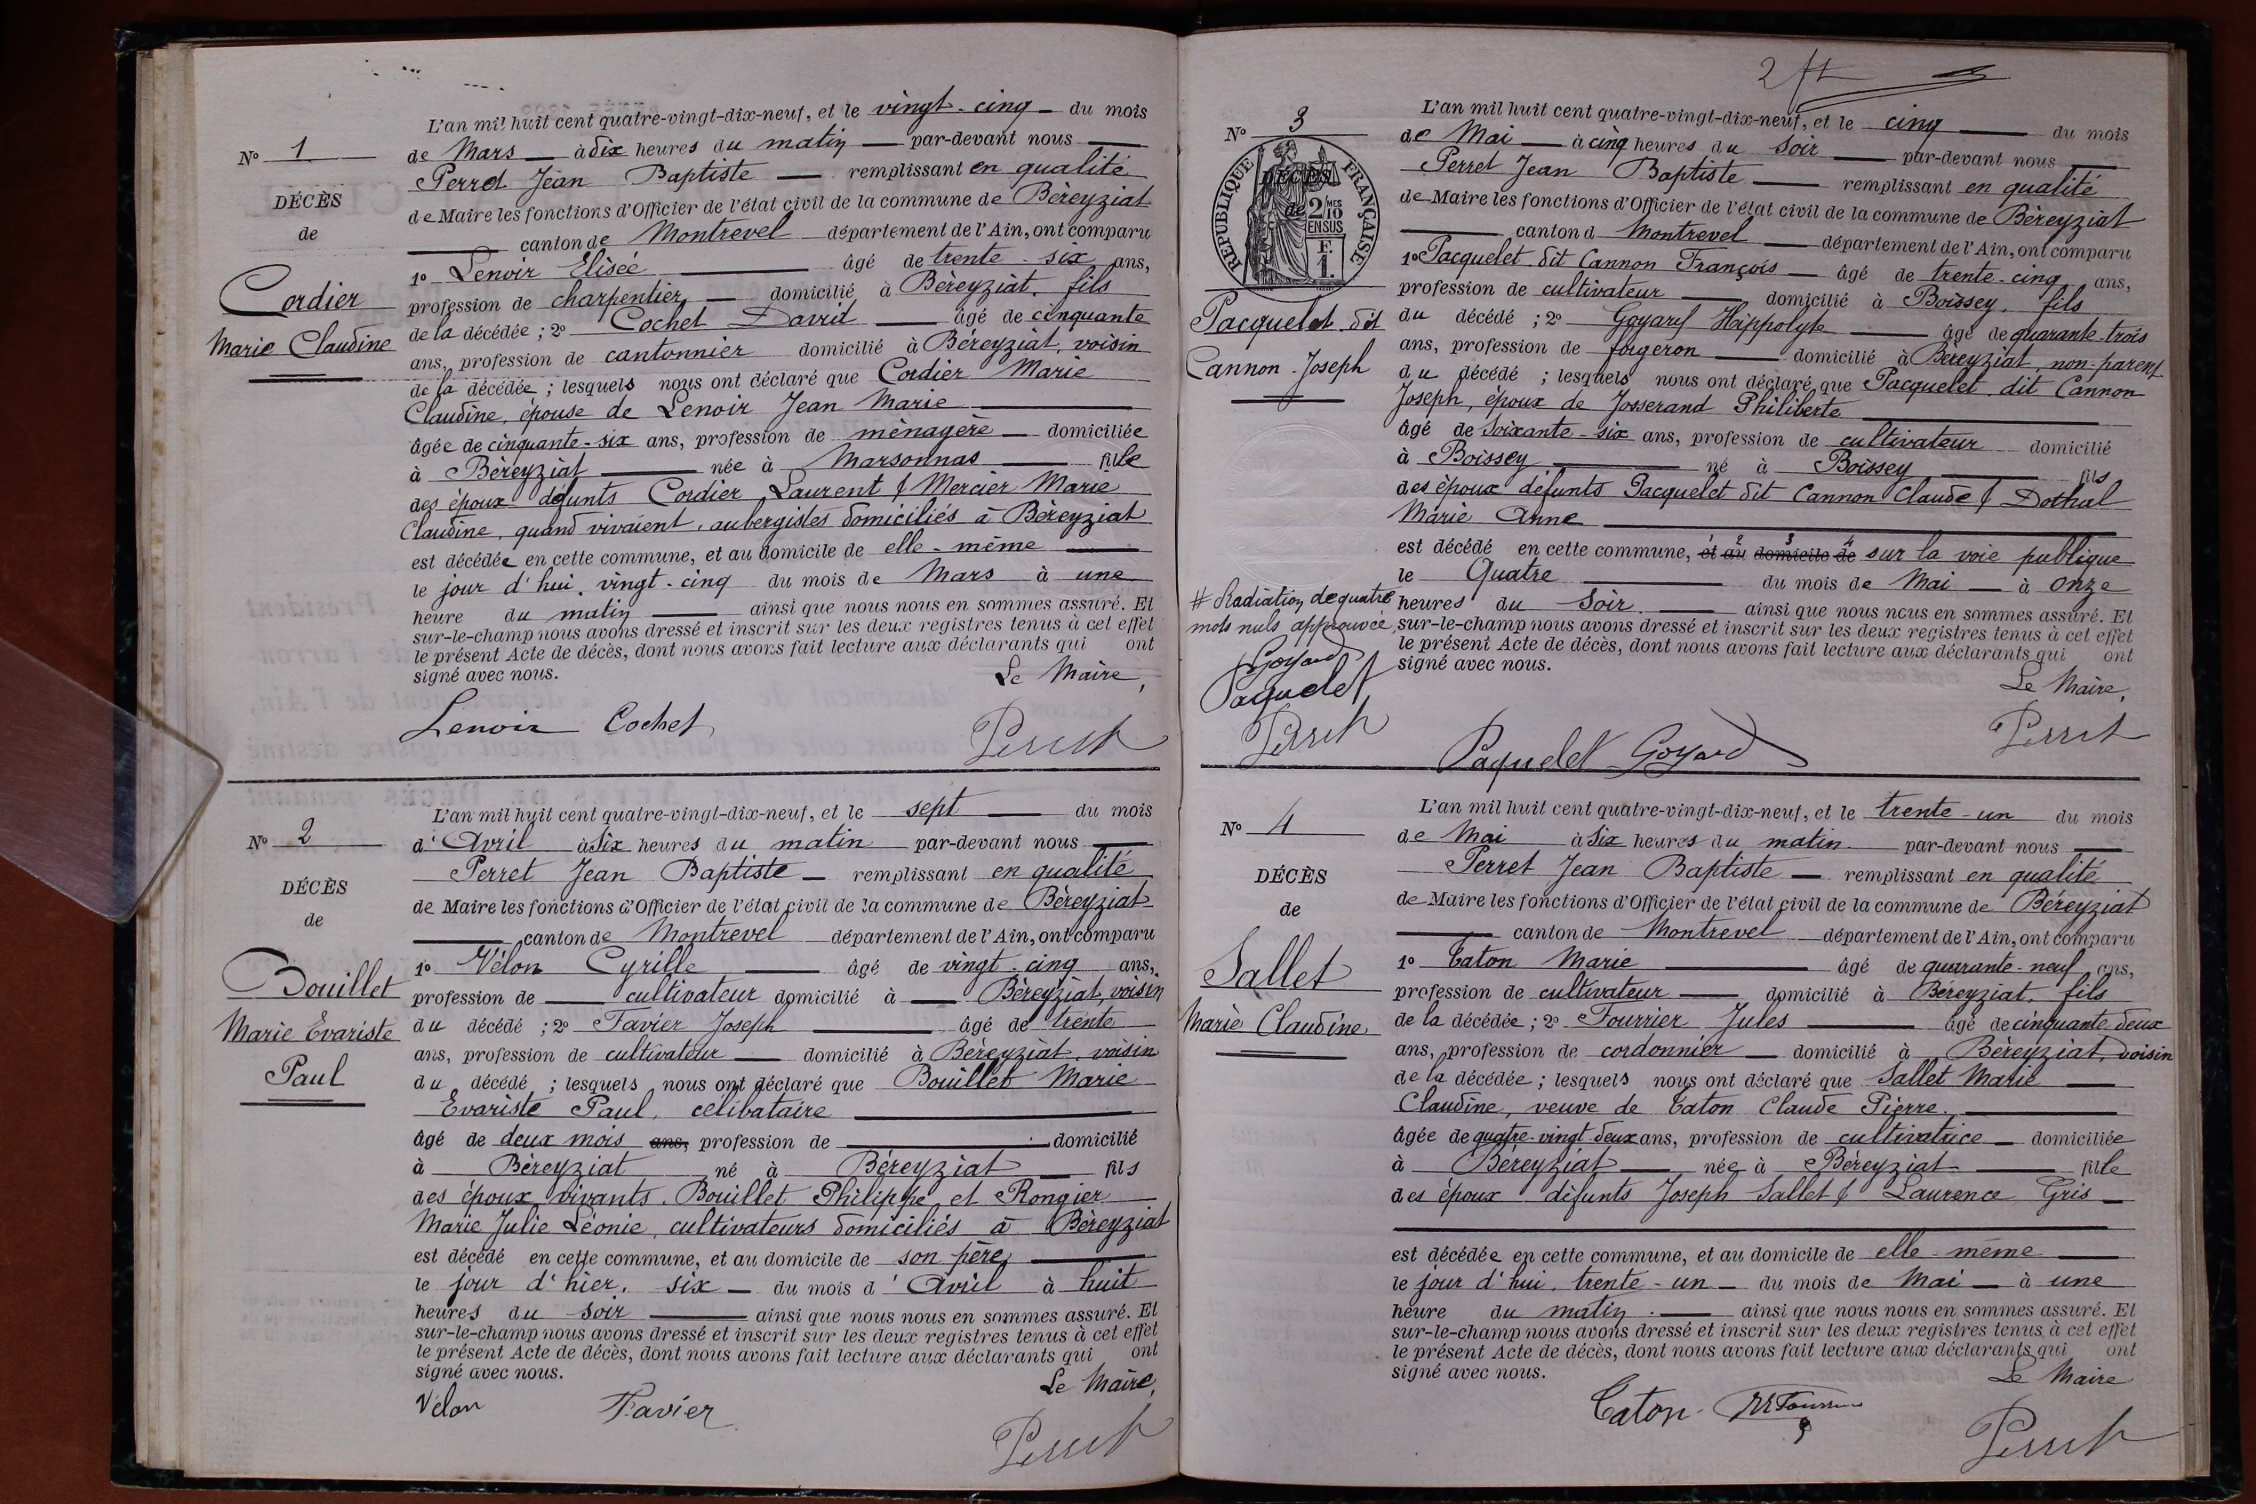 N° 1
DÉCÈS
de
Cordier
Marie Claudine
L'an mil huit cent quatre-vingt-dix-neuf, et le vingt-cinq du mois
de Mars à dix heures du matin par-devant nous
Perret Jean Baptiste remplissant en qualité
de Maire les fonctions d'Officier de l'état civil de la commune de Béreyziat
canton de Montrevel département de l'Ain, ont comparu
1° Lenoir Elisée âgé de trente-six ans,
profession de charpentier domicilié à Béreyziat, fils
de la décédée ; 2° Cochet David âgé de cinquante
ans, profession de cantonnier domicilié à Béreyziat, voisin
de la décédée ; lesquels nous ont déclaré que Cordier Marie
Claudine, épouse de Lenoir Jean Marie
âgée de cinquante-six ans, profession de ménagère domiciliée
à Béreyziat née à Marsonnas fille
des époux défunts Cordier Laurent & Mercier Marie
Claudine, quand vivaient, aubergistes domiciliés à Béreyziat
est décédée en cette commune, et au domicile de elle-même
le jour d'hui, vingt-cinq du mois de Mars à une
heure du matin ainsi que nous nous en sommes assuré. Et
sur-le-champ nous avons dressé et inscrit sur les deux registres tenus à cet effet
le présent Acte de décès, dont nous avons fait lecture aux déclarants qui ont
signé avec nous.
Le Maire,
Lenoir Cochet
Perret
N° 2
DÉCÈS
de
Bouillet
Marie Evariste
Paul
L'an mil huit cent quatre-vingt-dix-neuf, et le sept du mois
d'Avril à six heures du matin par-devant nous
Perret Jean Baptiste remplissant en qualité
de Maire les fonctions d'Officier de l'état civil de la commune de Béreyziat
canton de Montrevel département de l'Ain, ont comparu
1° Vélon Cyrille âgé de vingt-cinq ans,
profession de cultivateur domicilié à Béreyziat, voisin
du décédé ; 2° Favier Joseph âgé de trente
ans, profession de cultivateur domicilié à Béreyziat, voisin
du décédé ; lesquels nous ont déclaré que Bouillet Marie
Evariste Paul, célibataire
âgé de deux mois ans, profession de domicilié
à Béreyziat né à Béreyziat fils
des époux vivants, Bouillet Philippe et Rongier
Marie Julie Léonie, cultivateurs domiciliés à Béreyziat
est décédé en cette commune, et au domicile de son père
le jour d'hier, six du mois d'Avril à huit
heures du soir ainsi que nous nous en sommes assuré. Et
sur-le-champ nous avons dressé et inscrit sur les deux registres tenus à cet effet
le présent Acte de décès, dont nous avons fait lecture aux déclarants qui ont
signé avec nous.
Le Maire,
Vélon Favier
Perret
2
N° 3
RÉPUBLIQUE FRANÇAISE
DÉCÈS
de
2/10
MES
EN SUS
F.
1.
Pacquelet dit
Cannon Joseph
L'an mil huit cent quatre-vingt-dix-neuf, et le cinq du mois
de Mai à cinq heures du soir par-devant nous
Perret Jean Baptiste remplissant en qualité
de Maire les fonctions d'Officier de l'état civil de la commune de Béreyziat
canton d Montrevel département de l'Ain, ont comparu
1° Pacquelet dit Cannon François âgé de trente-cinq ans,
profession de cultivateur domicilié à Boissey, fils
du décédé ; 2° Goyard Hippolyte âgé de quarante-trois
ans, profession de forgeron domicilié à Béreyziat, non-parent
du décédé ; lesquels nous ont déclaré que Pacquelet dit Cannon
Joseph, époux de Josserand Philiberte
âgé de soixante-six ans, profession de cultivateur domicilié
à Boissey né à Boissey fils
des époux défunts Pacquelet dit Cannon Claude &
Marie Anne
1 2 3 4
est décédé en cette commune, et au domicile de sur la voie publique
le Quatre du mois de Mai à onze
heures du soir ainsi que nous nous en sommes assuré. Et
sur-le-champ nous avons dressé et inscrit sur les deux registres tenus à cet effet
le présent Acte de décès, dont nous avons fait lecture aux déclarants qui ont
signé avec nous.
Le Maire,
# Radiation de quatre
mots nuls approuvée
Goyard
Paquelet
Perret
Paquelet Goyard
Perret
N° 4
DÉCÈS
de
Sallet
Marie Claudine
L'an mil huit cent quatre-vingt-dix-neuf, et le trente-un du mois
de Mai à six heures du matin par-devant nous
Perret Jean Baptiste remplissant en qualité
de Maire les fonctions d'Officier de l'état civil de la commune de Béreyziat
canton de Montrevel département de l'Ain, ont comparu
1° Caton Marie âgé de quarante-neuf ans,
profession de cultivateur domicilié à Béreyziat, fils
de la décédée ; 2° Fourrier Jules âgé de cinquante deux
ans, profession de cordonnier domicilié à Béreyziat, voisin
de la décédée ; lesquels nous ont déclaré que Sallet Marie
Claudine, veuve de Caton Claude Pierre,
âgée de quatre-vingt-deux ans, profession de cultivatrice domiciliée
à Béreyziat née à Béreyziat fille
des époux défunts Joseph Sallet & Laurence Gris
est décédée en cette commune, et au domicile de elle-même
le jour d'hui, trente-un du mois de Mai à une
heure du matin ainsi que nous nous en sommes assuré. Et
sur-le-champ nous avons dressé et inscrit sur les deux registres tenus à cet effet
le présent Acte de décès, dont nous avons fait lecture aux déclarants qui ont
signé avec nous.
Le Maire
Caton
Perret